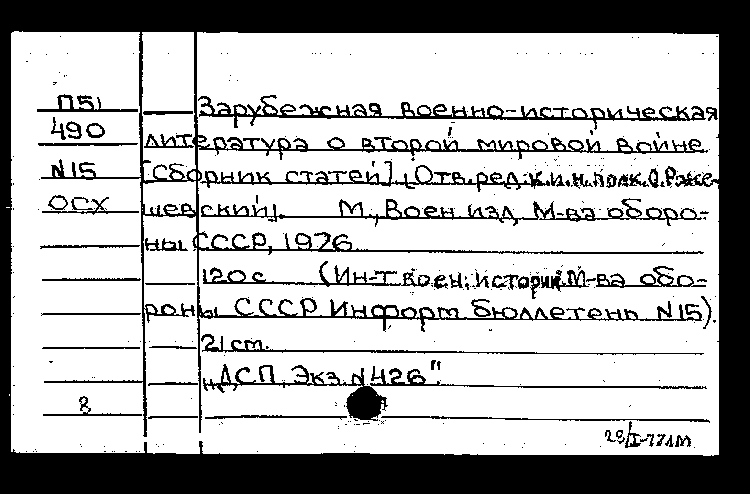 П51 Зарубежная военно-историческая
490 литература о второй мировой войне
N15 [Сборник статей]. [Отв. ред. к.и.н. полк. О. Рже-
ОСХ шевский]. М., Воен изд, М-ва оборо-
ны СССР, 1976
120 с (Ин-т воен. истории М-ва обо-
роны СССР Информ. бюллетень N15).
21 ст.
"ДСП, Экз. N426".
8
28/I-77